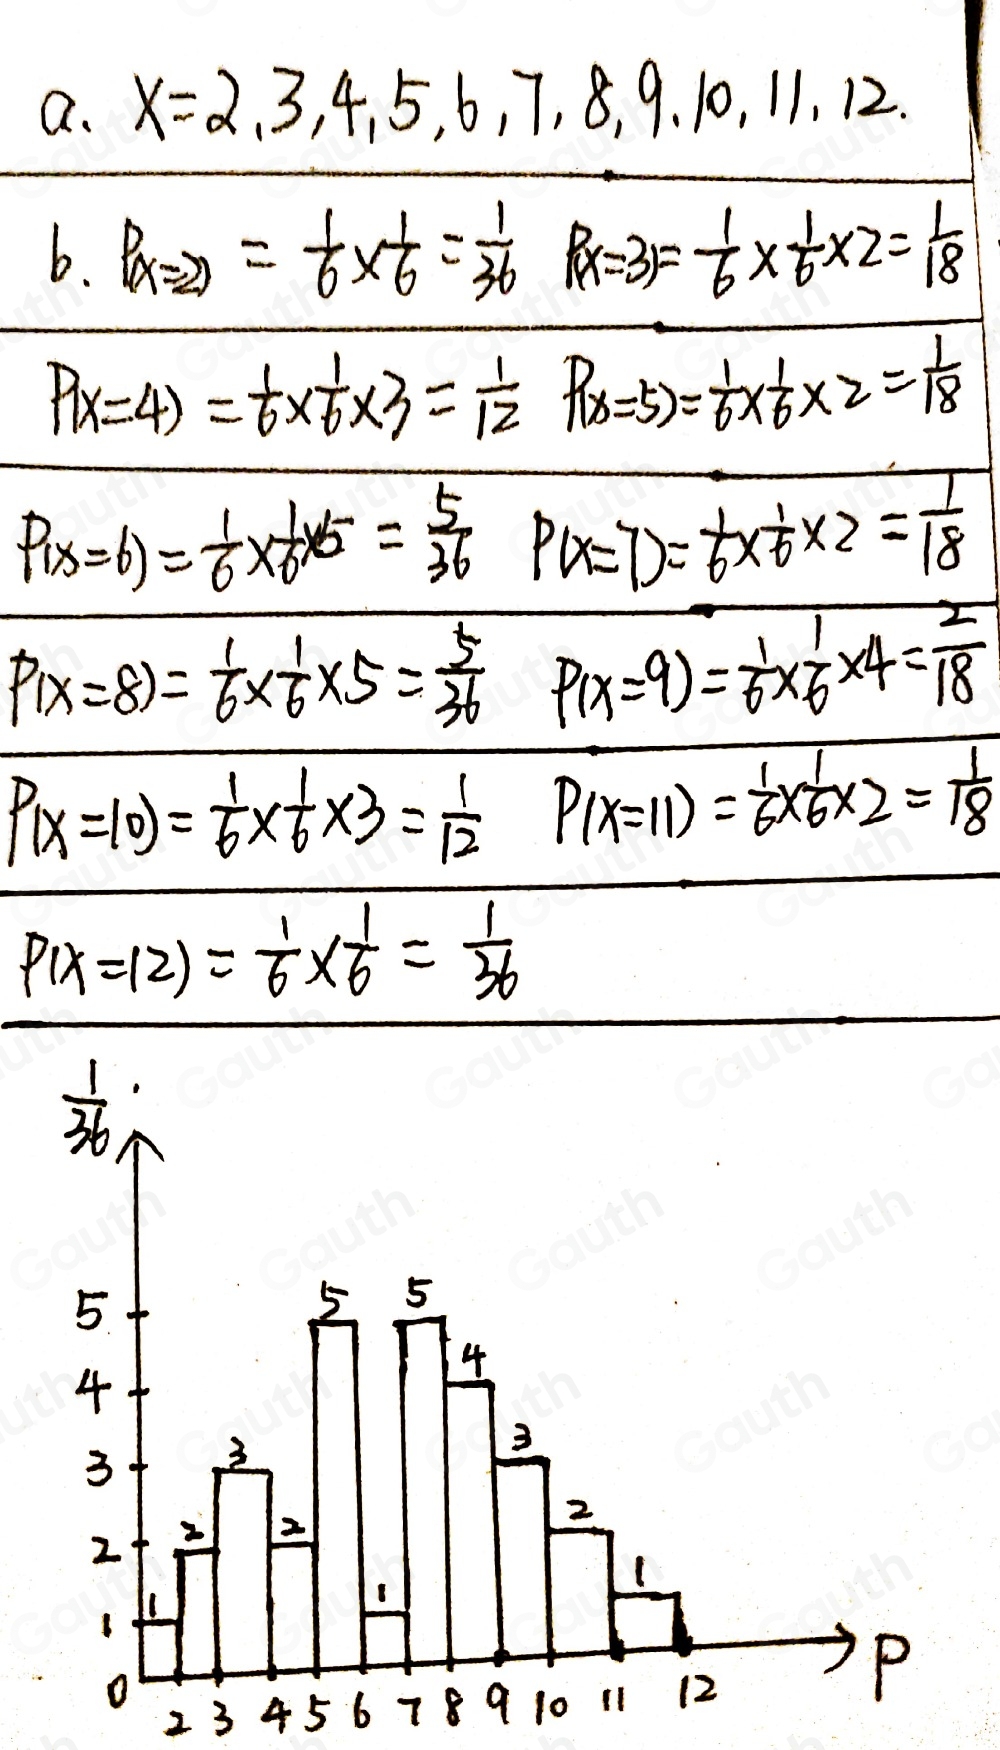 a. X=2,3,4,5,6,7,8,9,10,11,12.
b. P(x=2) = 1/6 × 1/6 = 1/36 P(X=3) = 1/6 × 1/6 × 2 = 1/18
P(X=4) = 1/6 × 1/6 × 3 = 1/12 P(x=5) = 1/6 × 1/6 × 2 = 1/18
P(x=6) = 1/6 × 1/6 × 5 = 5/36 P(X=7) = 1/6 × 1/6 × 2 = 1/18
P(X=8) = 1/6 × 1/6 × 5 = 5/36 P(X=9) = 1/6 × 1/6 × 4 = 2/18
P(X=10) = 1/6 × 1/6 × 3 = 1/12 P(X=11) = 1/6 × 1/6 × 2 = 1/18
P(X=12) = 1/6 × 1/6 = 1/36
1/36
5 5 5
4 4
3 3 3
2 2 2 2
1 1 1 1
0 P
2 3 4 5 6 7 8 9 10 11 12
Gauth